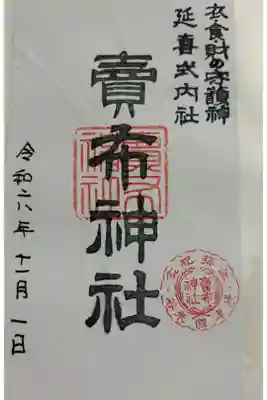 衣食財の守護神
延喜式内社
賣布神社
令和六年十一月一日
賣布
神社